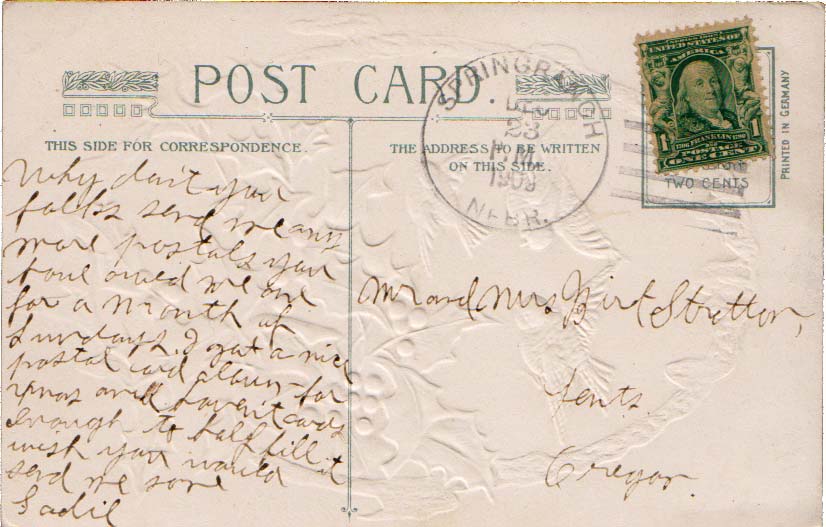 POST CARD.
THIS SIDE FOR CORRESPONDENCE.
THE ADDRESS TO BE WRITTEN
ON THIS SIDE.
SPRINGRANCH
DEC
23
PM
1909
NEBR.
SERIES 1902
UNITED STATES OF
AMERICA
1 FRANKLIN 1
POSTAGE
ONE CENT
TWO CENTS
PRINTED IN GERMANY
Why don't you
folks send me any
more postals you
have owed me one
for a month of
Sundays. I got a nice
postal card album for
Xmas and haven't cards
enough to half fill it
wish you would
send me some
Sadie
Mr and Mrs Birt Stratton,
Lents.
Oregon.